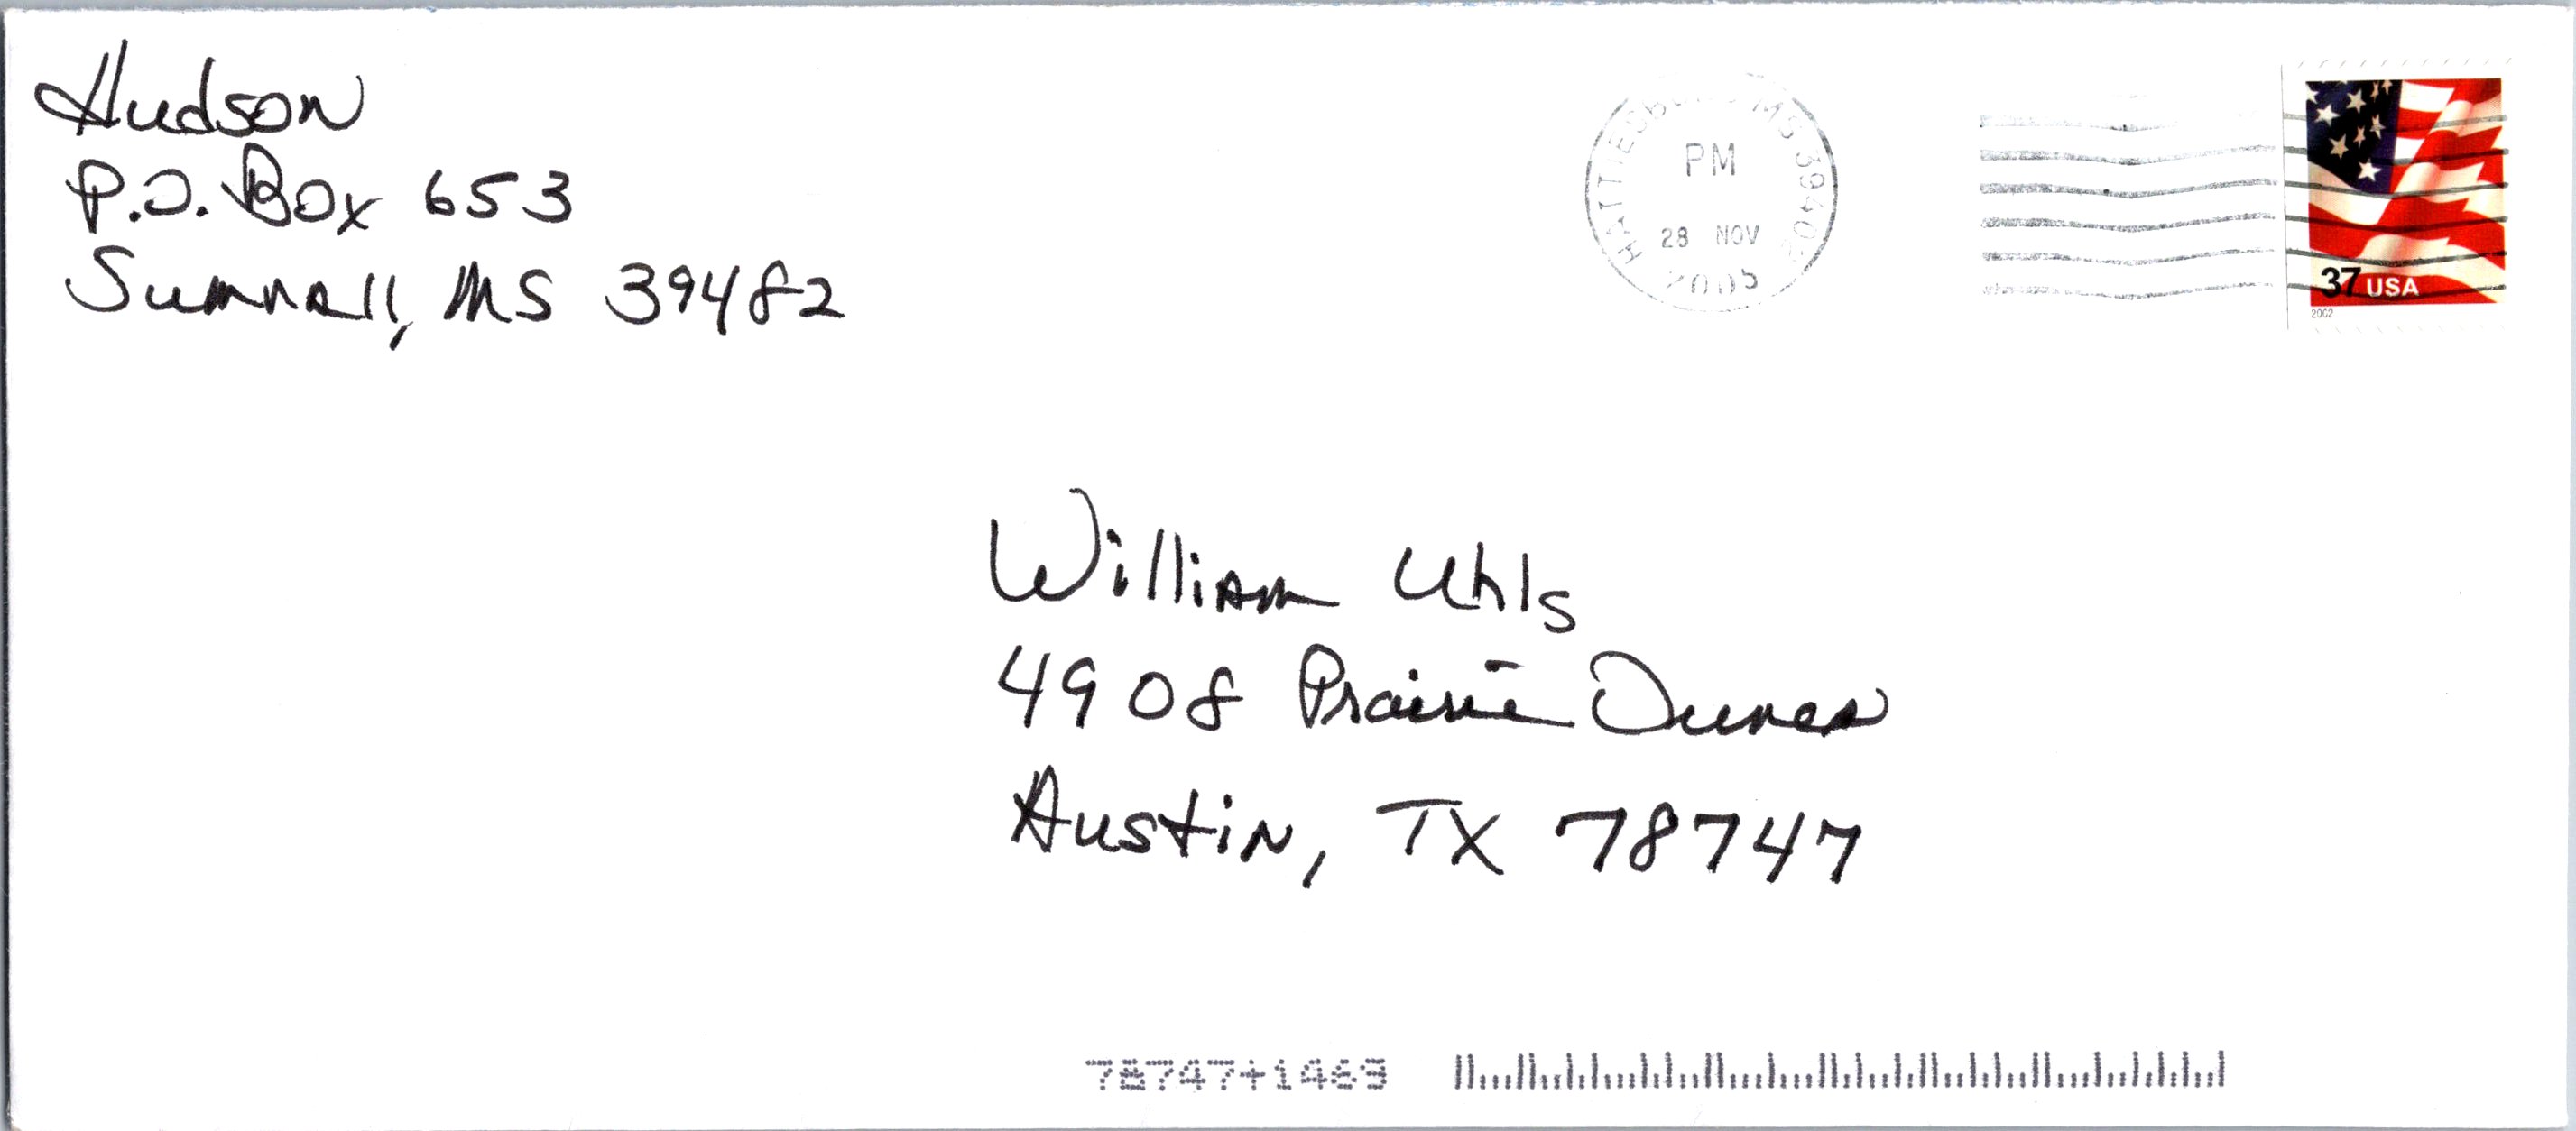 Hudson
P.O. Box 653
Sumrall, MS 39482
HATTIESBURG MS 39402
PM
28 NOV
2005
37 USA
2002
William Uhls
4908 Prairie Dunes
Austin, TX 78747
78747+1463